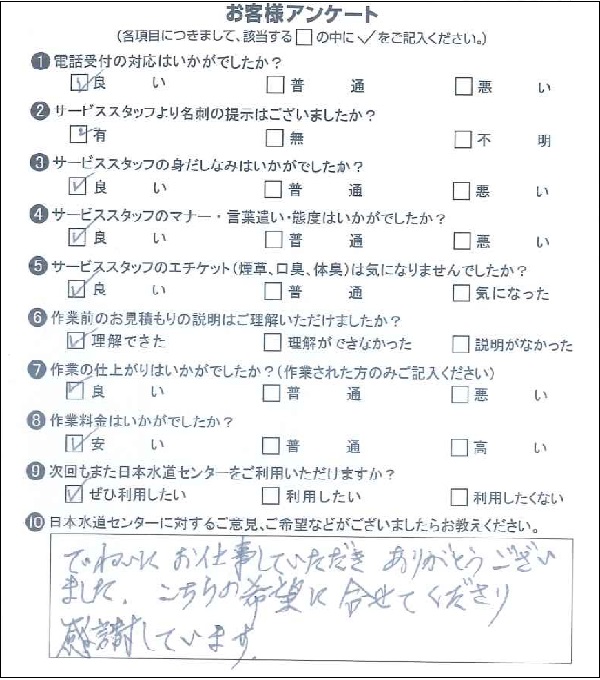 お客様アンケート
(各項目につきまして、該当する□の中に✓をご記入ください。)
❶電話受付の対応はいかがでしたか?
☑良い □普通 □悪い
❷サービススタッフより名刺の提示はございましたか?
☑有 □無 □不明
❸サービススタッフの身だしなみはいかがでしたか?
☑良い □普通 □悪い
❹サービススタッフのマナー・言葉遣い・態度はいかがでしたか?
☑良い □普通 □悪い
❺サービススタッフのエチケット(煙草、口臭、体臭)は気になりませんでしたか?
☑良い □普通 □気になった
❻作業前のお見積もりの説明はご理解いただけましたか?
☑理解できた □理解ができなかった □説明がなかった
❼作業の仕上がりはいかがでしたか?(作業された方のみご記入ください)
☑良い □普通 □悪い
❽作業料金はいかがでしたか?
☑安い □普通 □高い
❾次回もまた日本水道センターをご利用いただけますか?
☑ぜひ利用したい □利用したい □利用したくない
❿日本水道センターに対するご意見、ご希望などがございましたらお教えください。
ていねいに お仕事していただき ありがとうござい
ました。こちらの希望に合せてくださり
感謝しています。